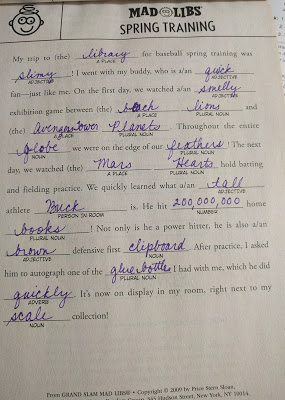 MAD LIBS®
SPRING TRAINING
My trip to (the) library for baseball spring training was
A PLACE
slimy ! I went with my buddy, who is a/an quick
ADJECTIVE ADJECTIVE
fan—just like me. On the first day, we watched a/an smelly
ADJECTIVE
exhibition game between (the) beach lions and
A PLACE PLURAL NOUN
(the) Avengers Tower Planets. Throughout the entire
A PLACE PLURAL NOUN
globe we were on the edge of our feathers! The next
NOUN PLURAL NOUN
day, we watched (the) Mars Hearts hold batting
A PLACE PLURAL NOUN
and fielding practice. We quickly learned what a/an tall
ADJECTIVE
athlete Buck is. He hit 200,000,000 home
PERSON IN ROOM NUMBER
books ! Not only is he a power hitter, he is also a/an
PLURAL NOUN
brown defensive first clipboard. After practice, I asked
ADJECTIVE NOUN
him to autograph one of the glue bottles I had with me, which he did
PLURAL NOUN
quickly. It's now on display in my room, right next to my
ADVERB
scale collection!
NOUN
From GRAND SLAM MAD LIBS® • Copyright © 2009 by Price Stern Sloan,
345 Hudson Street, New York, NY 10014.